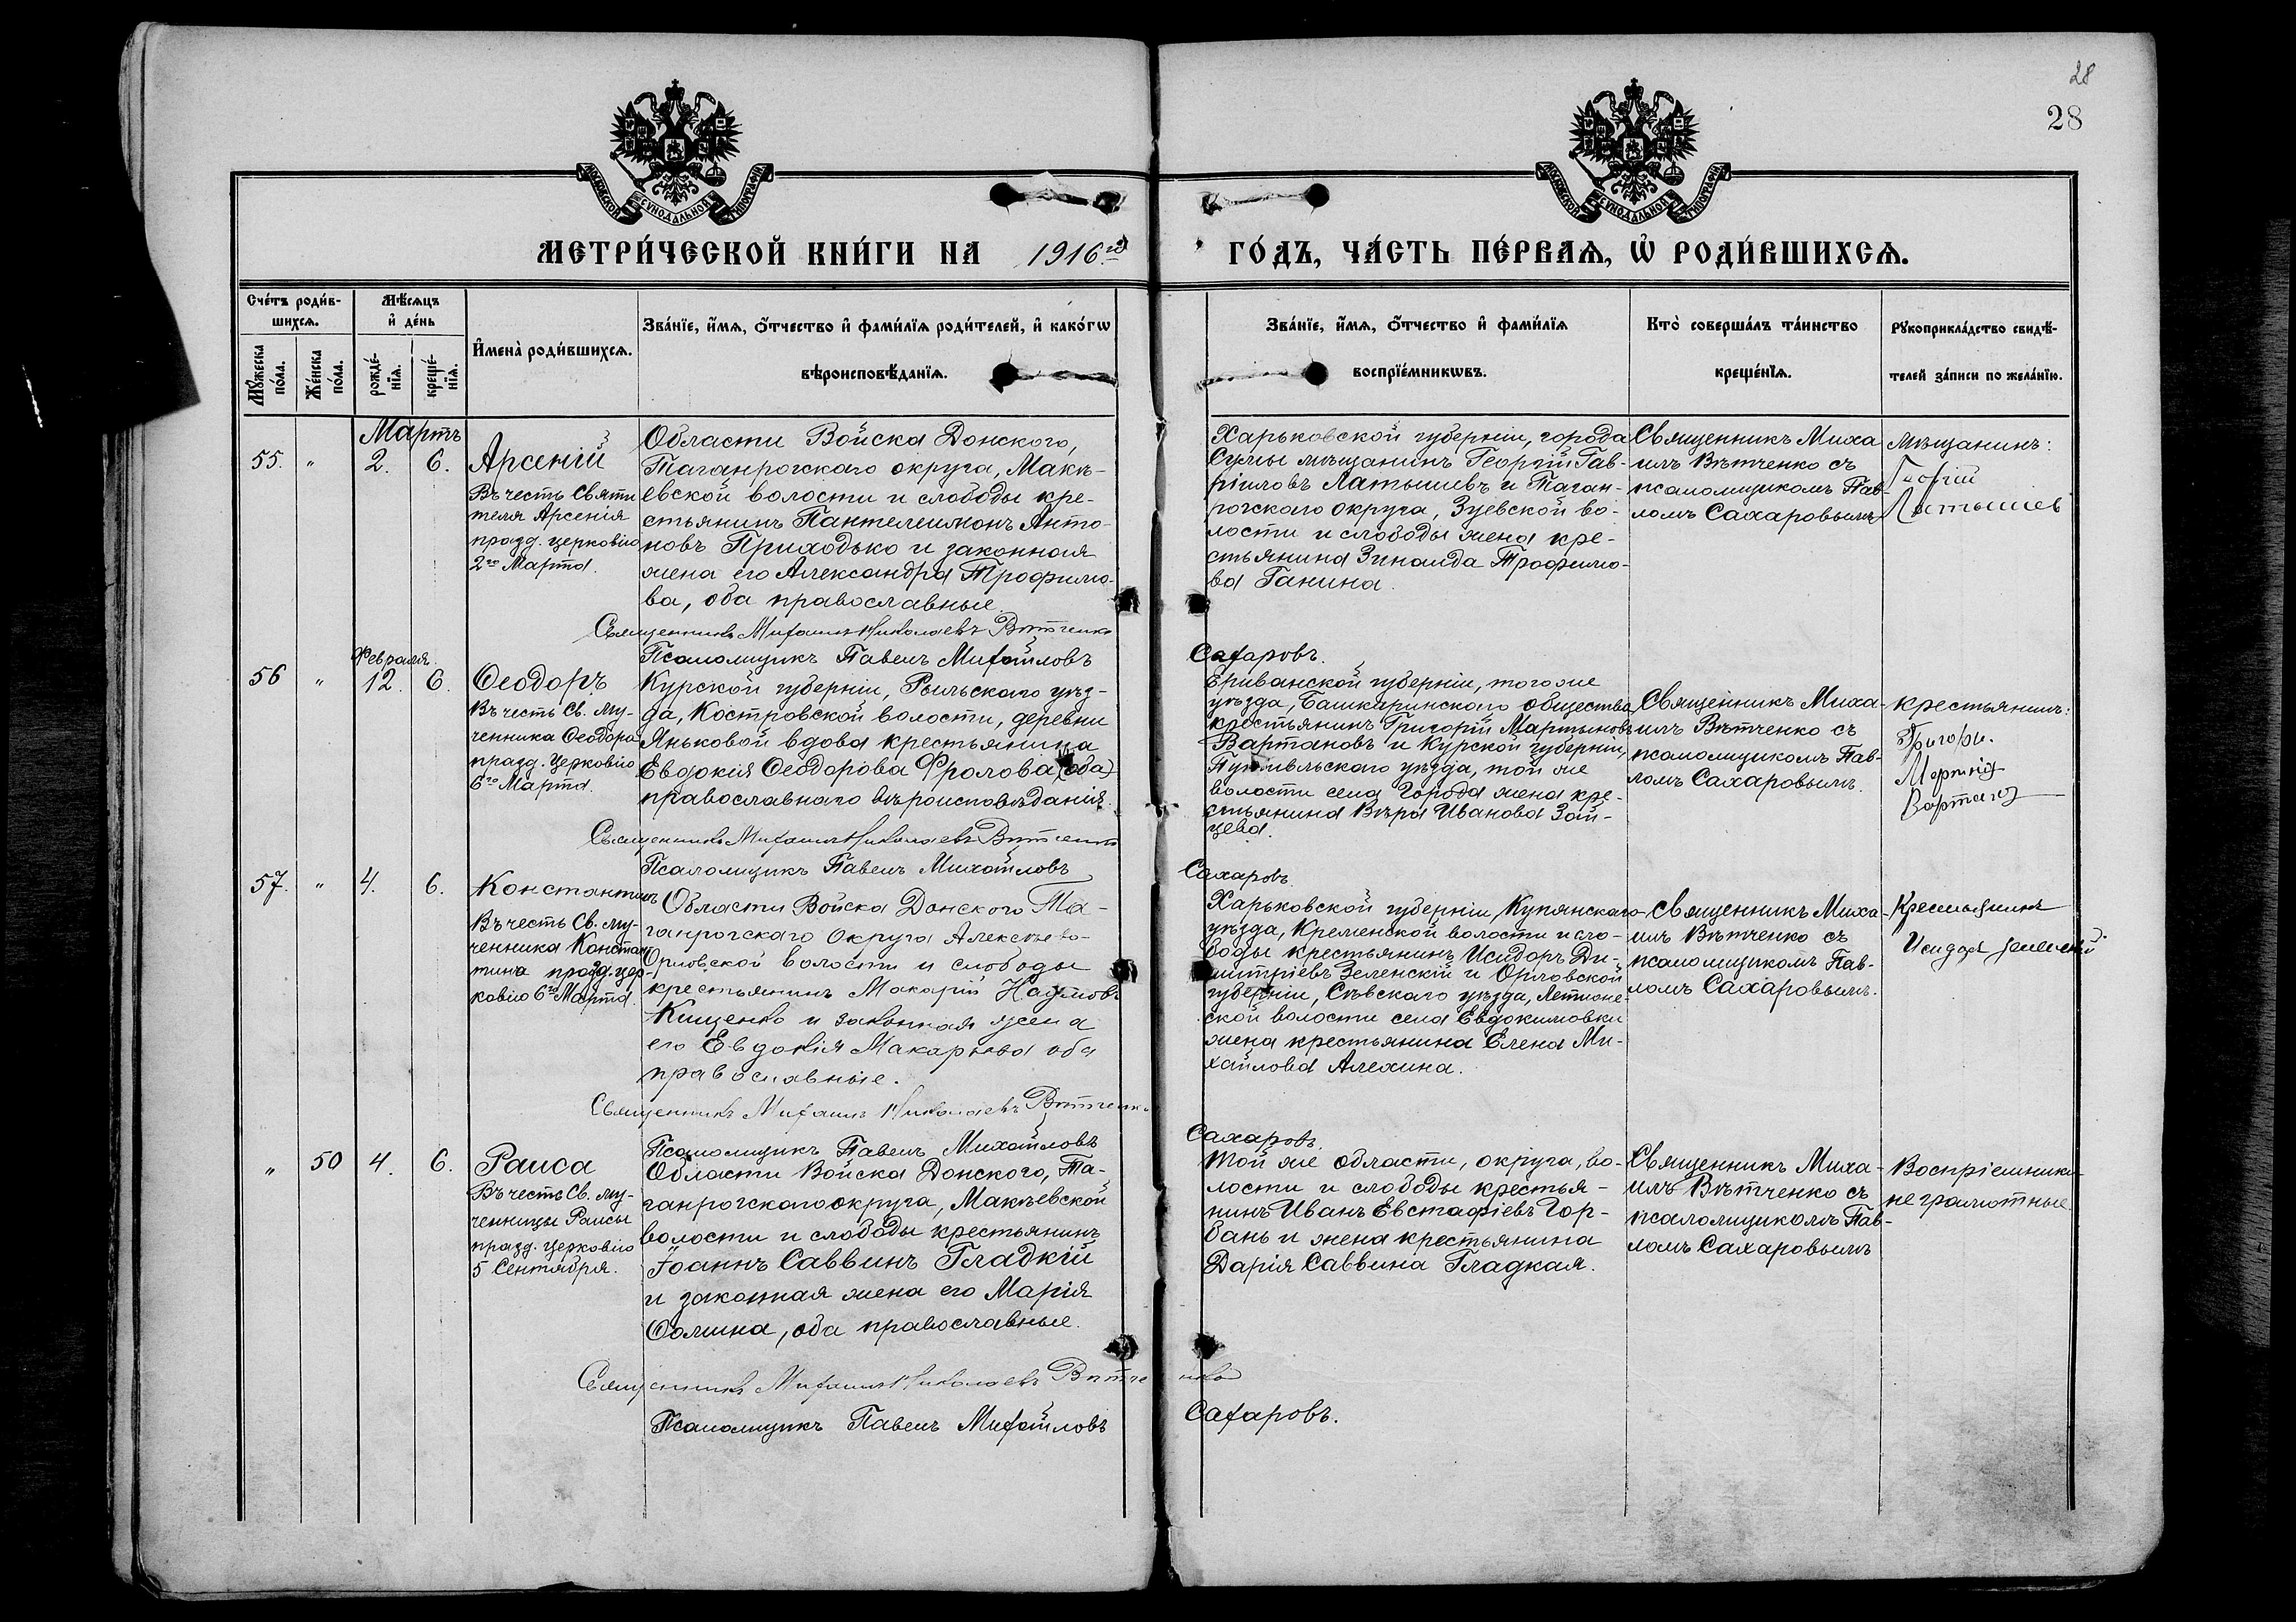 28
28
МОСКОВСКОЙ СѴНОДАЛЬНОЙ ТИПОГРАФІИ
МОСКОВСКОЙ СѴНОДАЛЬНОЙ ТИПОГРАФІИ
МЕТРИ́ЧЕСКОЙ КНИ́ГИ НА 1916.го
ГО́ДЪ, ЧА́СТЬ ПЕ́РВАѦ, Ѡ҆ РОДИ́ВШИХСѦ.
Сче́тъ роди́в-
шихсѧ.
Мѣ́сѧцъ
и҆ де́нь
Мꙋ́жеска по́ла.
Же́нска по́ла.
рожде́-нїѧ.
креще́-нїѧ.
И҆мена̀ роди́вшихсѧ.
Зва́нїе, и҆́мѧ, о҆́тчество и҆ фами́лїѧ роди́телей, и҆ како́гѡ
вѣроисповѣ́данїѧ.
Зва́нїе, и҆́мѧ, о҆́тчество и҆ фами́лїѧ
воспрїе́мникѡвъ.
Кто̀ соверша́лъ та́инство
креще́нїѧ.
Рꙋкоприкла́дство свидѣ́-
телей за́писи по жела́нїю.
Мартъ
55. " 2. 6. Арсеній
Въ честь Святи
теля Арсенія
празд. церковію
2го Марта.
Области Войска Донского,
Таганрогскаго округа, Макѣ-
евской волости и слободы кре-
стьянинъ Пантелеимонъ Анто-
новъ Приходько и законная
жена его Александра Трофимо-
ва, оба православные.
Священникъ Михаилъ Николаевъ Вѣтченко
Псаломщикъ Павелъ Михайловъ
Сахаровъ.
Харьковской губерніи, города
Сумы мѣщанинъ Георгій Гав-
ріиловъ Латышевъ и Таган-
рогскаго округа, Зуевской во-
лости и слободы жена кре-
стьянина Зинаида Трофимо-
ва Ганина.
Священникъ Миха
илъ Вѣтченко съ
псаломщикомъ Пав-
ломъ Сахаровымъ
мѣщанинъ:
Георгій
Латышев
Февраля.
56 " 12. 6. Ѳеодоръ
Въ честь Св. му-
ченика Ѳеодора
празд. Церковію
6го Марта.
Курской губерніи, Рыльскаго уѣз-
да, Костровской волости, деревни
Яньковой вдова крестьянина
Евдокія Ѳеодорова Фролова (оба)
православнаго вѣроисповѣданія.
Священникъ Михаилъ Николаевъ Вѣтченко
Псаломщикъ Павелъ Михайловъ
Сахаровъ.
Ериванской губерніи, того же
уѣзда, Башкаринскаго общества
крестьянинъ Григорій Мартыновъ
Вартановъ и Курской губерніи,
Путивльскаго уѣзда, той же
волости села Города жена кре-
стьянина Вѣра Иванова Зай-
цева.
Священникъ Миха-
илъ Вѣтченко съ
псаломщикомъ Пав-
ломъ Сахаровымъ.
крестьянинъ:
57. " 4. 6. Константинъ
Въ честь Св. му-
ченика Констан-
тина празд. цер-
ковію 6го Марта.
Области Войска Донского Та-
ганрогскаго Округа Алексѣево-
Орловской волости и слободы
крестьянинъ Макарій Наумовъ
Кищенко и законная жена
его Евдокія Макарьева оба
православные.
Священникъ Михаилъ Николаевъ Вѣтченко
Псаломщикъ Павелъ Михайловъ
Сахаровъ.
Харьковской губерніи Купянскаго
уѣзда, Кременской волости и сло-
боды крестьянинъ Исидоръ Ди-
митріевъ Зеленскій и Орловской
губерніи, Сѣвскаго уѣзда,
ской волости села Евдокимовки
жена крестьянина Елена Ми-
хайлова Алехина.
Священникъ Миха-
илъ Вѣтченко съ
псаломщикомъ Пав-
ломъ Сахаровымъ.
Крестьянинъ
Исидор Зеленский
" 50 4. 6. Раиса
Въ честь Св. му-
ченицы Раисы
празд. церковію
5 Сентября.
Области Войска Донского, Та-
ганрогскаго округа, Макѣевской
волости и слободы крестьянинъ
Іоаннъ Саввинъ Гладкій
и законная жена его Марія
Ѳомина, оба православные.
Священникъ Михаилъ Николаевъ Вѣтченко
Псаломщикъ Павелъ Михайловъ
Сахаровъ.
Той же области, округа, во-
лости и слободы крестья-
нинъ Иванъ Евстафіевъ Гор-
бань и жена крестьянина
Дарія Саввина Гладкая.
Священникъ Миха-
илъ Вѣтченко съ
псаломщикомъ Пав-
ломъ Сахаровымъ
Воспріемники
неграмотные